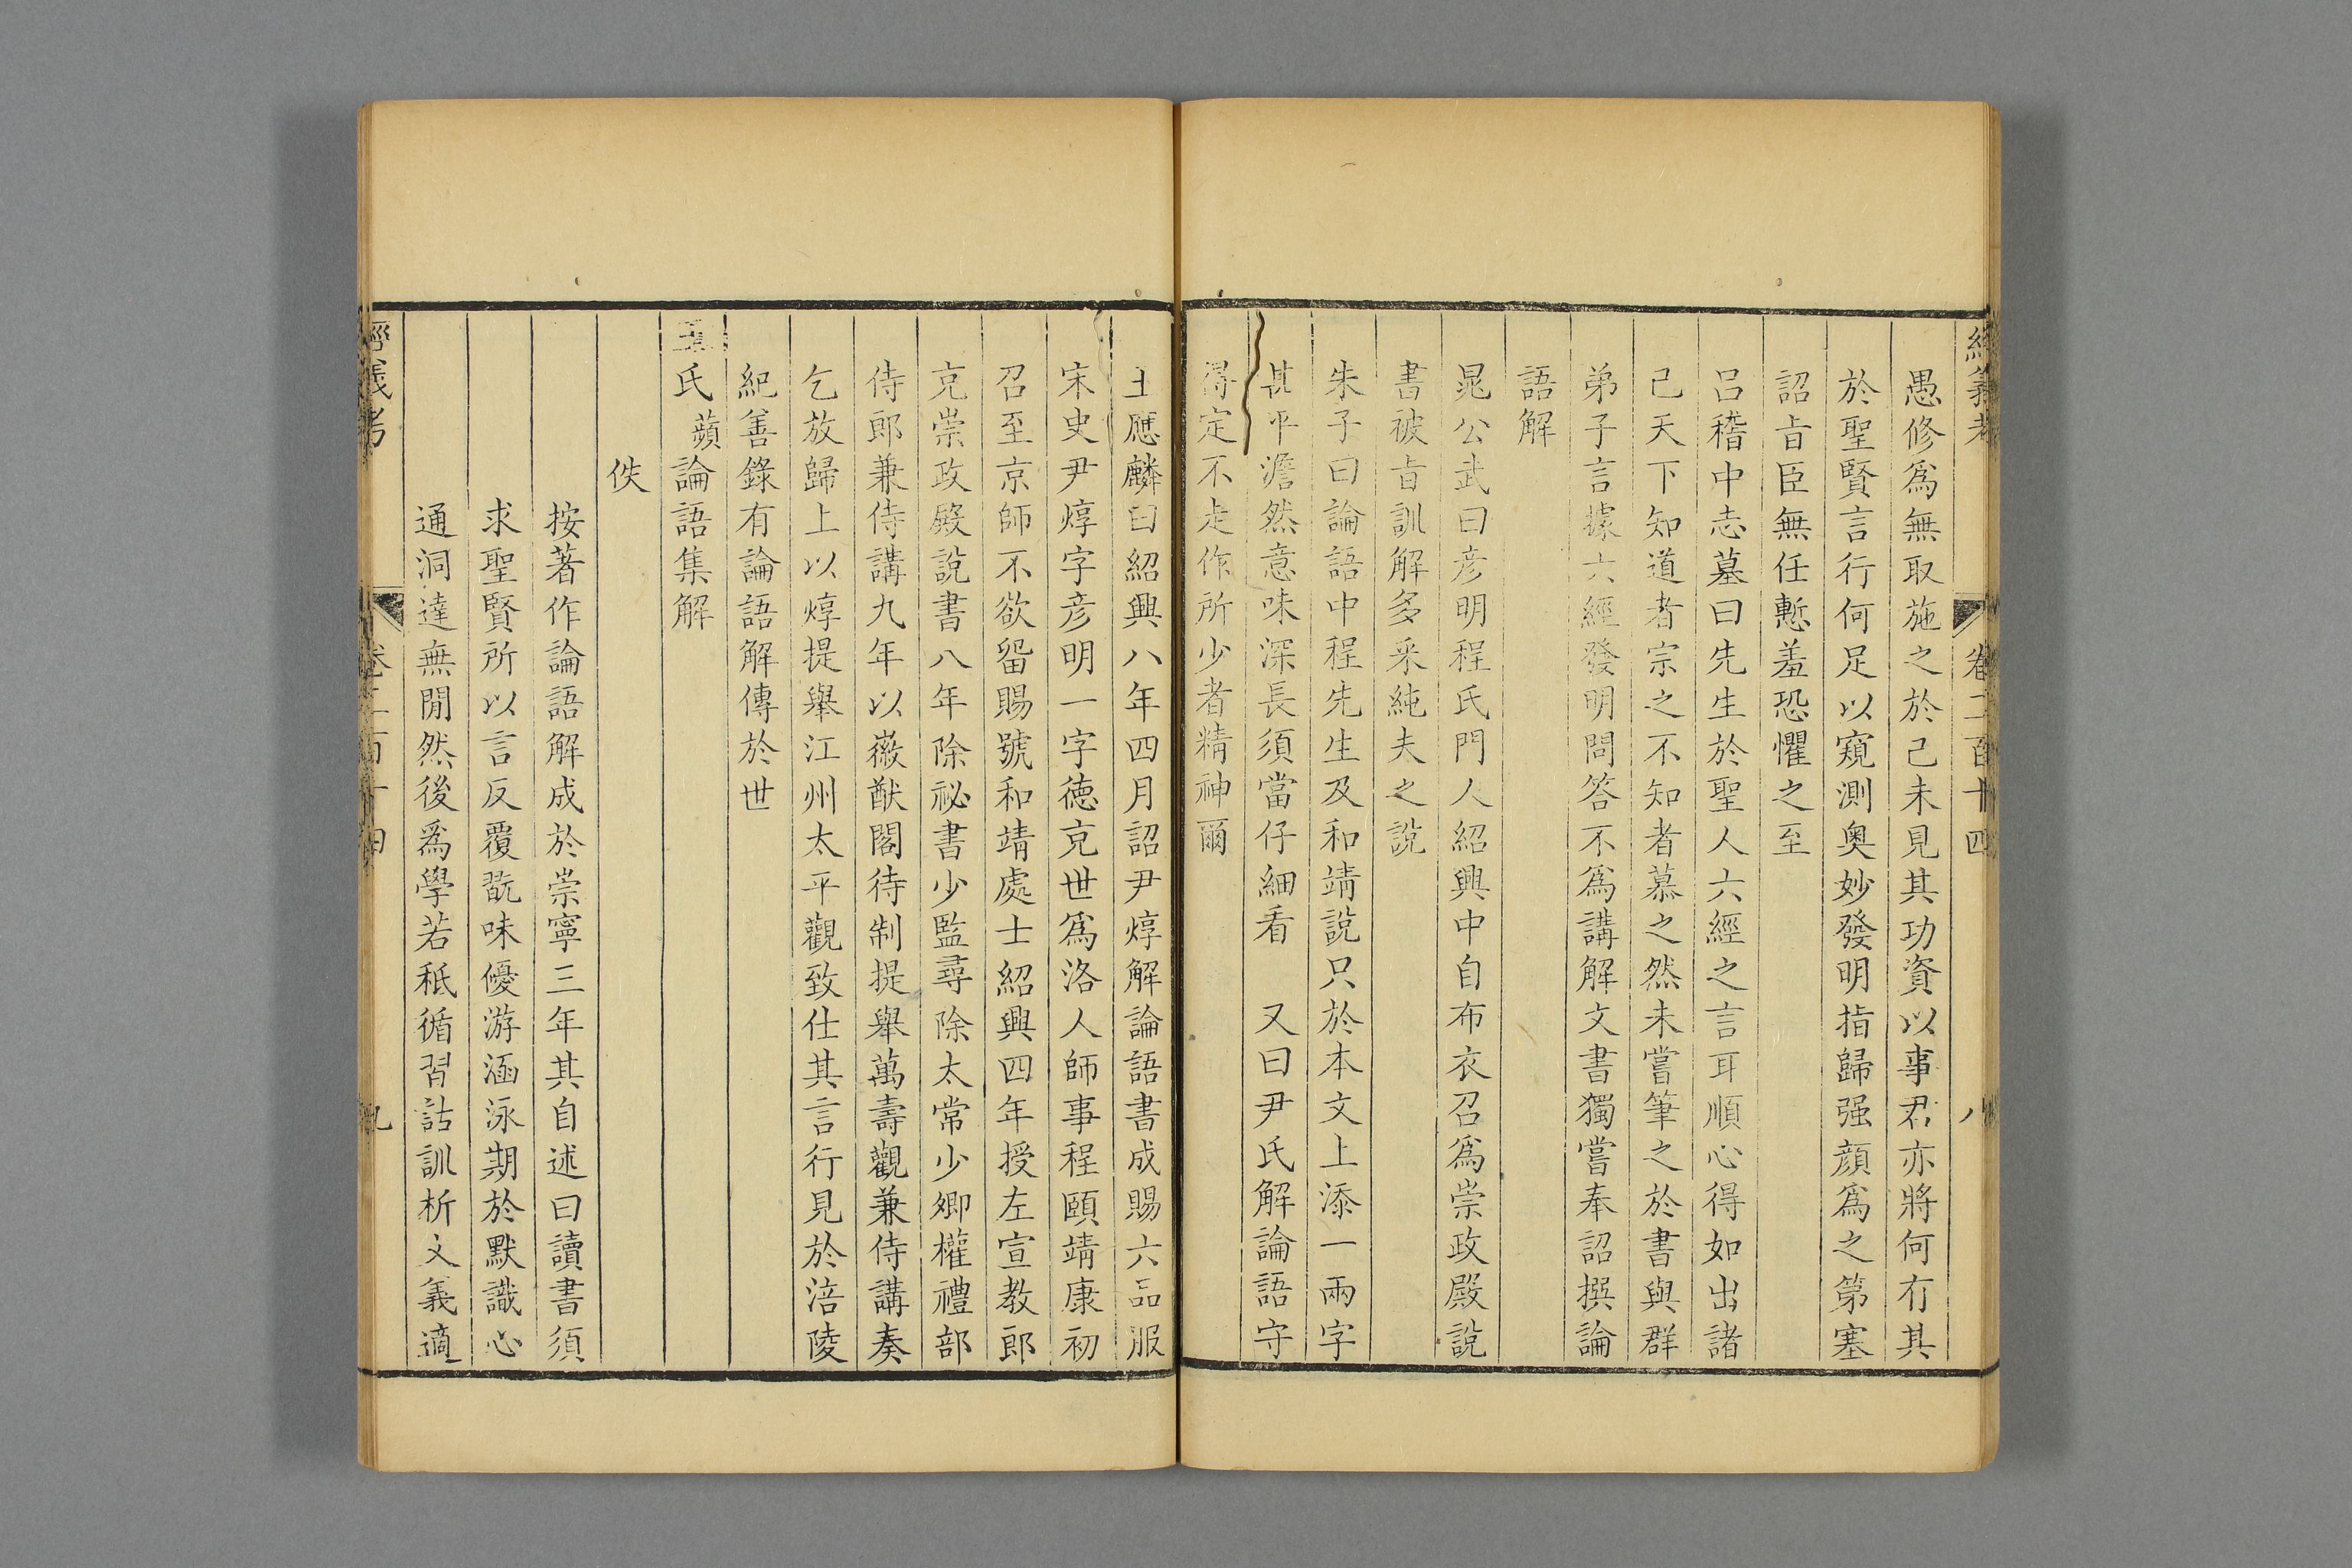 經義考 卷二百十四 八
愚修爲無取施之於己未見其功資以事君亦將何有其
於聖賢言行何足以窺測奥妙發明指歸强顔爲之第塞
詔㫖臣無任慙羞恐懼之至
吕稽中志墓曰先生於聖人六經之言耳順心得如出諸
己天下知道者宗之不知者慕之然未嘗筆之於書與群
弟子言據六經發明問答不爲講解文書獨嘗奉詔撰論
語解
晁公武曰彦明程氏門人紹興中自布衣召爲崇政殿說
書被㫖訓解多采純夫之說
朱子曰論語中程先生及和靖說只於本文上添一兩字
甚平澹然意味深長須當仔細看　又曰尹氏解論語守
得定不走作所少者精神爾
王應麟曰紹興八年四月詔尹焞解論語書成賜六品服
宋史尹焞字彦明一字徳充世爲洛人師事程頤靖康初
召至京師不欲留賜號和靖處士紹興四年授左宣教郎
充崇政殿說書八年除祕書少監尋除太常少卿權禮部
侍郎兼侍講九年以徽猷閣待制提舉萬壽觀兼侍講奏
乞放歸上以焞提舉江州太平觀致仕其言行見於涪陵
紀善錄有論語解傳於世
王氏蘋論語集解
佚
按著作論語解成於崇寧三年其自述曰讀書須
求聖賢所以言反覆翫味優游涵泳期於默識心
通洞達無閒然後爲學若秖循習詁訓析文義適
經義考 卷二百十四 九